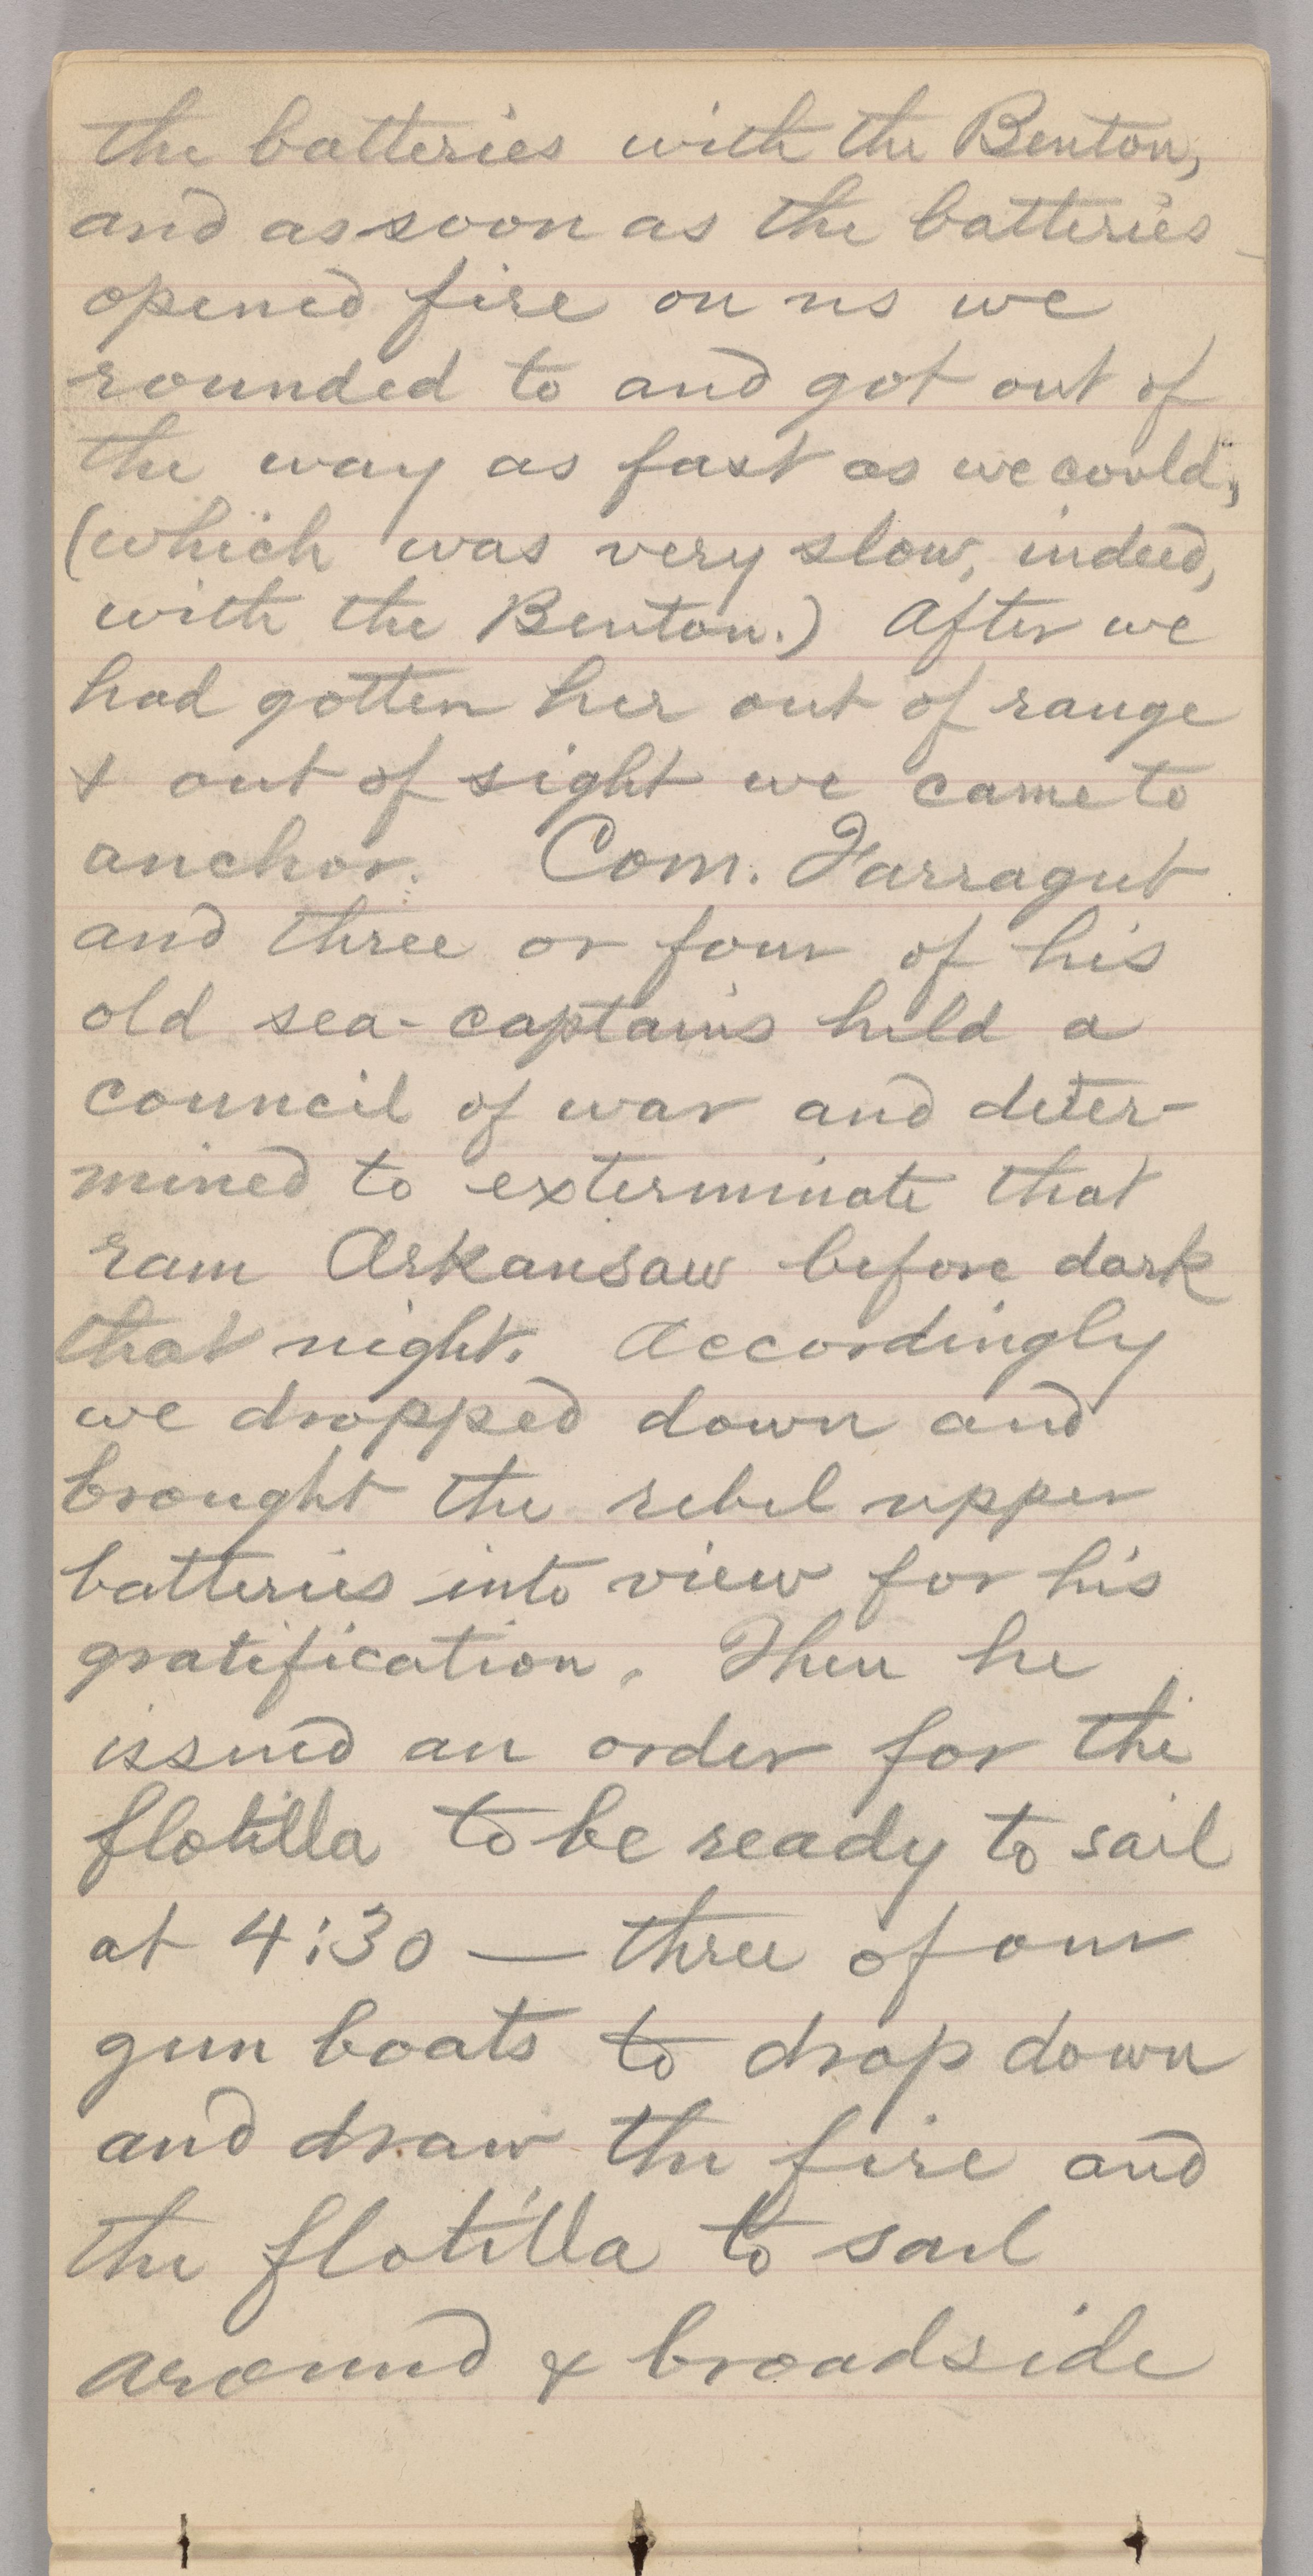 the batteries with the Benton,
and as soon as the batteries
opened fire on us we
rounded to and got out of
the way as fast as we could,
(which was very slow, indeed,
with the Benton.) After we
had gotten her out of range
& out of sight we came to
anchor. Com. Farragut
and three or four of his
old sea-captains held a
council of war and deter-
mined to exterminate that
ram Arkansaw before dark
that night. Accordingly
we dropped down and
brought the rebel upper
batteries into view for his
gratification. Then he
issued an order for the
flotilla to be ready to sail
at 4:30 — three of our
gun boats to drop down
and draw the fire and
the flotilla to sail
around & broadside